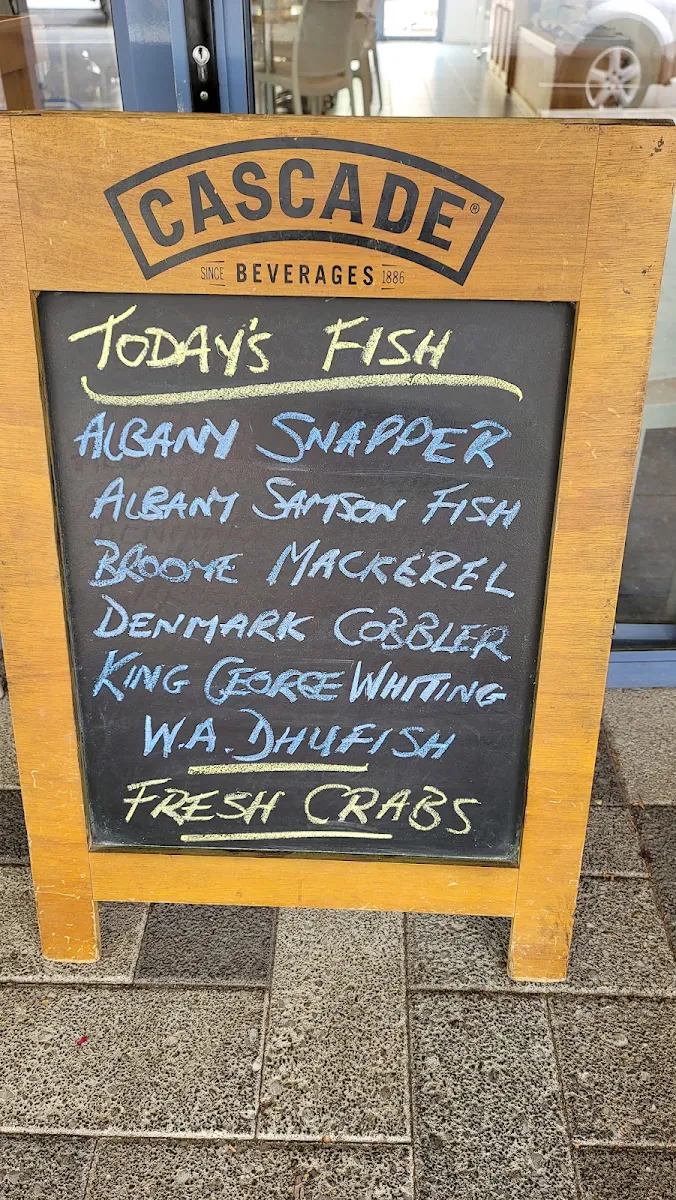 CASCADE®
SINCE BEVERAGES 1886
TODAY'S FISH
ALBANY SNAPPER
ALBANY SAMSON FISH
BROOME MACKEREL
DENMARK COBBLER
KING GEORGE WHITING
W.A. DHUFISH
FRESH CRABS